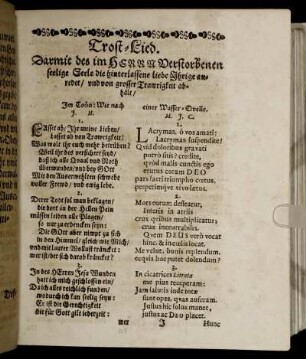 Trost-Lied.
Darmit des im HERRN Verstorbenen
seelige Seele die hinterlassene liebe Ihrige an-
redet / und von grosser Traurigkeit ab-
hält /
Im Thon: Wie nach einer Wasser-Qvelle.
J. M. M. J. C.
1.
Lasset ab / Ihr meine Lieben /
lasset ab von Traurigkeit!
Was wolt ihr euch mehr betrüben?
Weil ihr des versichert seyd /
daß ich alle Qvaal und Noth
überwunden / und bey GOtt
Mit den Auserwehlten schwebe
voller Freud / und ewig lebe.
2.
Derer Tod sol man beklagen /
die dort in der Hellen Pein
müssen leiden alle Plagen /
so nur zu erdencken seyn:
Die GOtt aber nimpt zu sich
in den Himmel / gleich wie Mich /
und mit lauter Wollust träncket:
wer ist der sich darob kräncket?
3.
In des HErren Jesu Wunden
hatt ich mich geschlossen ein /
Da ich alles reichlich funden /
wodurch ich kan seelig seyn:
Er ist die Gerechtigkeit
die für Gott gilt jederzeit:
wer
1.
Lacryman, ô vos amati!
Lacrymas suspendite!
Quid doloribus gravati
porrò sitis? credite,
quòd malis cunctis ego
erutus coram DEO
pars sacri triumpho coetus,
perpetimque vivo laetus.
2.
Mors eorum defleatur,
interis in atris
crux quibus multiplicatur;
crux inenarrabilis.
Quem DEUS verò vocat
hinc, & in coelis locat,
Me velut, bonis replendum,
ecquis huc putet dolendum?
3.
In cicatrices
me pius receperam:
Jam salutis inde totae
sunt opes, quas auferam.
Justus hic solus, manet,
justus ac Deo placet.
J Hunc